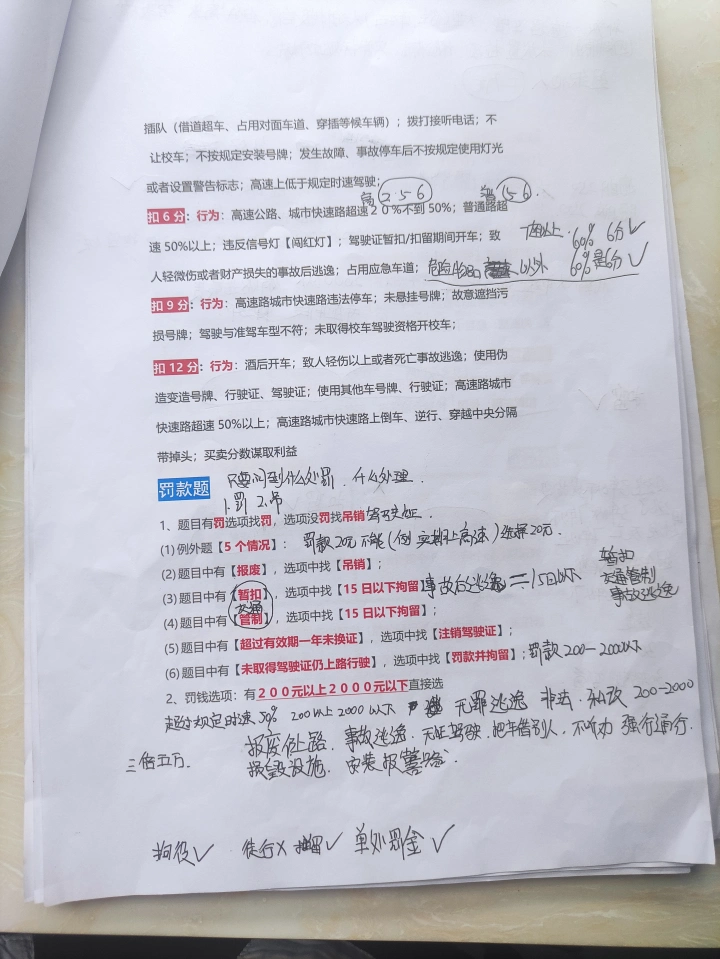 插队（借道超车、占用对面车道、穿插等候车辆）；拨打接听电话；不
让校车；不按规定安装号牌；发生故障、事故停车后不按规定使用灯光
或者设置警告标志；高速上低于规定时速驾驶；
高 2 5 6 普 5 6 .
扣 6 分：行为：高速公路、城市快速路超速２０％不到 50%；普通路超
速 50%以上；违反信号灯【闯红灯】；驾驶证暂扣/扣留期间开车；致
以上. 60% 6分✓
人轻微伤或者财产损失的事故后逃逸；占用应急车道；
以外 60% 6分✓
扣 9 分：行为：高速路城市快速路违法停车；未悬挂号牌；故意遮挡污
损号牌；驾驶与准驾车型不符；未取得校车驾驶资格开校车；
扣 12 分：行为：酒后开车；致人轻伤以上或者死亡事故逃逸；使用伪
造变造号牌、行驶证、驾驶证；使用其他车号牌、行驶证；高速路城市
快速路超速 50%以上；高速路城市快速路上倒车、逆行、穿越中央分隔
带掉头；买卖分数谋取利益
罚款题 只要问到什么处罚.什么处理.
1.罚 2.吊
1、题目有罚选项找罚，选项没罚找吊销驾驶证.
(1) 例外题【5 个情况】： 罚款20元 不能(例 实习期上高速)选择20元.
(2) 题目中有【报废】，选项中找【吊销】；
(3) 题目中有【暂扣】，选项中找【15 日以下拘留】事故后逃逸=15日以下
暂扣
交通管制
事故逃逸
交通
(4) 题目中有【管制】，选项中找【15 日以下拘留】；
(5) 题目中有【超过有效期一年未换证】，选项中找【注销驾驶证】；
(6) 题目中有【未取得驾驶证仍上路行驶】，选项中找【罚款并拘留】；罚款200-2000以下
2、罚钱选项：有２００元以上２０００元以下直接选
超过规定时速50% 200以上2000以下 无罪逃逸 非法.私改 200-2000
报废住上路.事故逃逸.无证驾驶.把车借别人.不听劝 强行通行.
三倍五万.
损毁设施.安装报警器.
拘役✓ 徒行X 拘留✓ 单处罚金✓